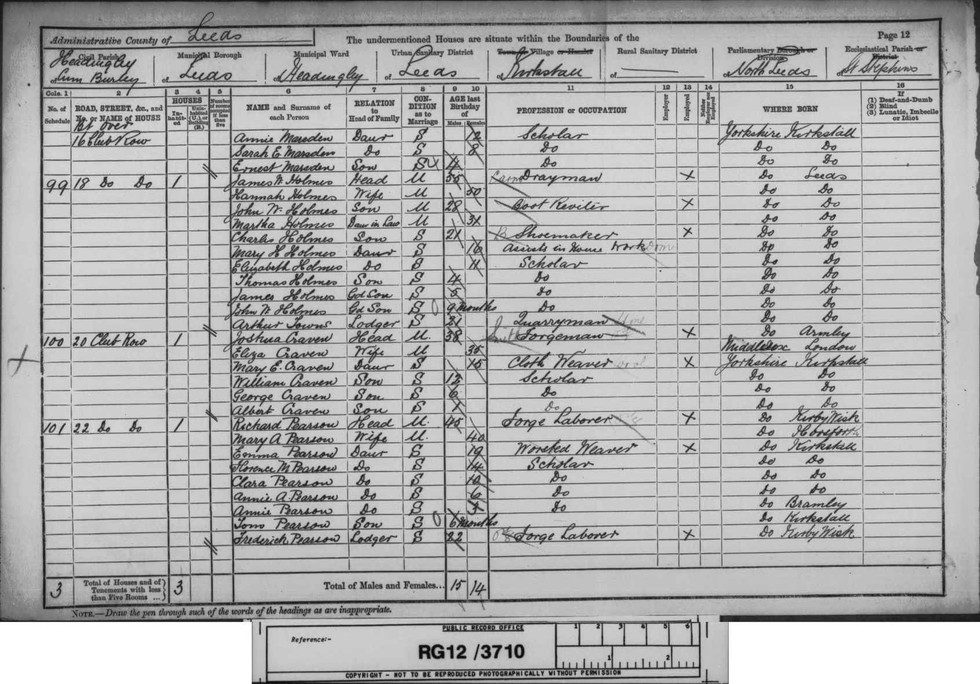 Administrative County of Leeds
The undermentioned Houses are situate within the Boundaries of the
Page 12
Civil Parish Municipal Borough Municipal Ward Urban Sanitary District Town or Village or Hamlet Rural Sanitary District Parliamentary Borough or Division Ecclesiastical Parish or District
Headingley cum Burley of Leeds of Headingley of Leeds of Kirkstall of — of North Leeds of St Stephens
Cols. 1 2 3 4 5 6 7 8 9 10 11 12 13 14 15 16
No. of Schedule ROAD, STREET, &c., and No. or NAME of HOUSE HOUSES Inhabited Uninhabited (U.), or Building (B.) Number of rooms occupied if less than five NAME and Surname of each Person RELATION to Head of Family CONDITION as to Marriage AGE last Birthday of Males Females PROFESSION or OCCUPATION Employer Employed Neither Employer nor Employed WHERE BORN If (1) Deaf-and-Dumb (2) Blind (3) Lunatic, Imbecile or Idiot
Bt over
16 Club Row Annie Marsden Daur S 12 Scholar Yorkshire Kirkstall
Sarah E. Marsden Do S 8 Do Do Do
Ernest Marsden Son S 4 Do Do Do
99 18 Do Do 1 James W Holmes Head M 55 Drayman X Do Leeds
Hannah Holmes Wife M 50 Do Do
John W. Holmes Son M 28 Boot Reviter X Do Do
Martha Holmes Daur in Law M 31 Do Do
Charles Holmes Son S 21 Shoemaker X Do Do
Mary H Holmes Daur S 16 Assists in House Work Do Do
Elizabeth Holmes Do S 11 Scholar Do Do
Thomas Holmes Son S 4 Do Do Do
James Holmes Gd Son S 5 Do Do Do
John W Holmes Gd Son S 9 Months Do Do Do
Arthur Towns Lodger S 21 Quarryman Do Do
100 20 Club Row 1 Joshua Craven Head M 38 Forgeman X Do Armley
Eliza Craven Wife M 35 Middlesex London
Mary E. Craven Daur S 15 Cloth Weaver X Yorkshire Kirkstall
William Craven Son S 12 Scholar Do Do
George Craven Son S 6 Do Do Do
Albert Craven Son S 1 Do Do Do
101 22 Do Do 1 Richard Pearson Head M 45 Forge Laborer X Do Kirby Wisk
Mary A Pearson Wife M 40 Do Horsforth
Emma Pearson Daur S 19 Worsted Weaver X Do Kirkstall
Florence M Pearson Do S 14 Scholar Do Do
Clara Pearson Do S 10 Do Do Do
Annie A Pearson Do S 6 Do Do Do
Annie Pearson Do S 3 Do Do Bramley
Tom Pearson Son S 6 Months Do Kirkstall
Frederick Pearson Lodger S 22 Forge Laborer X Do Kirby Wisk
3 Total of Houses and of Tenements with less than Five Rooms ... 3 Total of Males and Females... 15 14
NOTE.—Draw the pen through such of the words of the headings as are inappropriate.
PUBLIC RECORD OFFICE
Reference:-
1 2 3 4 5 6
RG12/3710
1 2
COPYRIGHT - NOT TO BE REPRODUCED PHOTOGRAPHICALLY WITHOUT PERMISSION